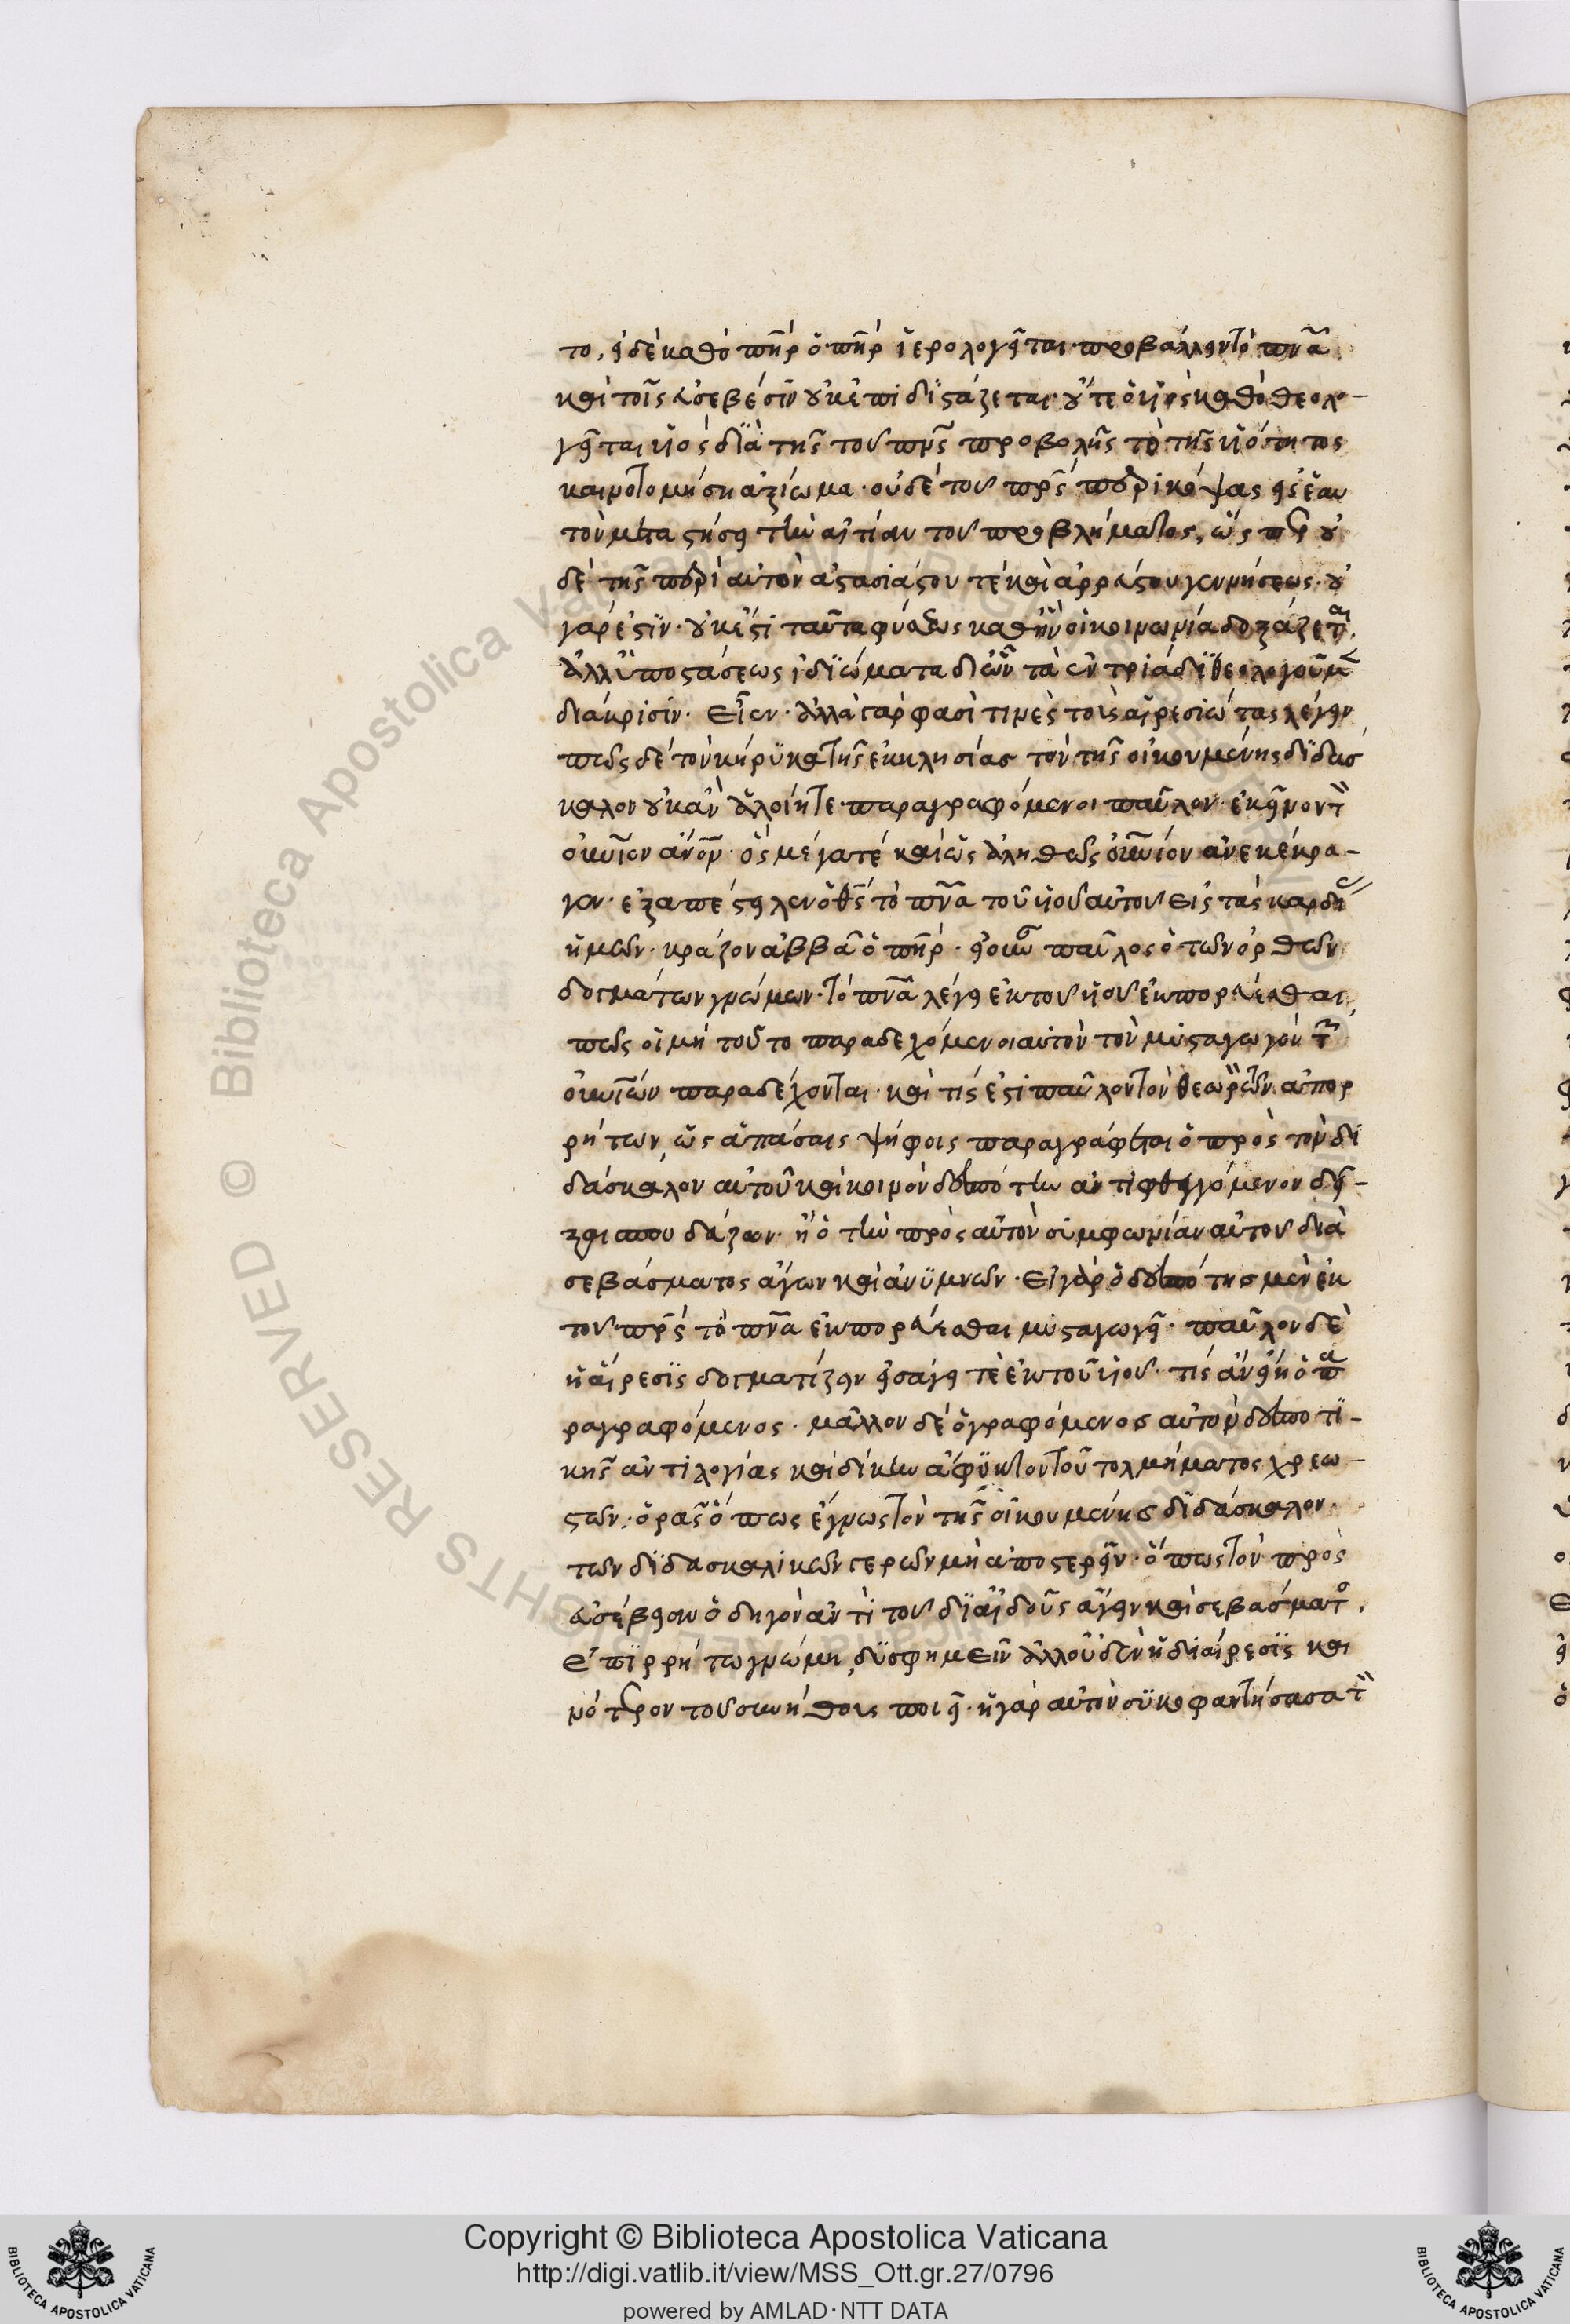 το, εἰ δὲ καθὸ πηρ ὁ πηρ ἱερολογεῖται προβάλλειν τὸ πνα
καὶ τοῖς ἀσεβέσιν οὐκ ἐπιδιστάζεται· οὔτε ὁ υἱὸς καθὸ θεολο-
γεῖται υἱὸς διὰ τῆς τοῦ πρς προβολῆς τὸ τῆς υἱότητος
καινοτομήσει ἀξίωμα· οὐδὲ τοῦ πρς περικόψας εἰς ἑαυ
τὸν μεταστήσει τὴν αἰτίαν τοῦ προβλήματος, ὥσπερ οὐ
δὲ τῆς περὶ αὐτὸν ἀστασιάστου τὲ καὶ ἀρρεύστου γεννήσεως· οὐ
γάρ ἐστιν· οὐκ ἔστι ταῦτα φύσεως καθ' ἣν ἡ κοινωνία δοξάζεται,
ἀλλ' ὑποστάσεως ἰδιώματα δι' ὧν τὰ ἐν τριάδι θεολογοῦμεν
διάκρισιν. Εἶεν· ἀλλὰ γάρ φασὶ τινὲς τοὺς αἱρεσιώτας λέγειν
πῶς δὲ τὸν κήρυκα τῆς ἐκκλησίας τὸν τῆς οἰκουμένης διδάσ
καλον οὐκ ἂν ἁλοίητε παραγραφόμενοι παῦλον· ἐκεῖνον τὸν
οὐνιον ἄνον· ὃς μέγα τέ καὶ ὡς ἀληθῶς οὐνιον ἀνεκέκρα-
γεν· ἐξαπέστειλεν ὁ θς τὸ πνα τοῦ υἱοῦ αὐτοῦ εἰς τὰς καρδίας
ἡμῶν· κράζον ἀββᾶ ὁ πηρ· εἰ οὖν παῦλος ὁ τῶν ὀρθῶν
δογμάτων γνώμων· τὸ πνα λέγει ἐκ τοῦ υἱοῦ ἐκπορεύεσθαι,
πῶς οἱ μὴ τοῦτο παραδεχόμενοι αὐτὸν τὸν μυσταγωγὸν τῶν
οὐνιων παραδέχονται· καὶ τίς ἐστι παῦλον τὸν θεωρὸν τῶν ἀπορ
ρήτων, ὡς ἁπάσαις ψήφοις παραγράφεται ὁ πρὸς τὸν δι
δάσκαλον αὐτοῦ καὶ κοινὸν δεσπότην ἀντιφθεγγόμενον δεῖ-
ξαι σπουδάζων· ἢ ὁ τὴν πρὸς αὐτὸν συμφωνίαν αὐτοῦ διὰ
σεβάσματος ἄγων καὶ ἀνυμνῶν. Εἰ γὰρ ὁ δεσπότης μὲν ἐκ
τοῦ πρς τὸ πνα ἐκπορεύεσθαι μυσταγωγεῖ· παῦλον δὲ
ἡ αἵρεσις δογματίζειν εἰσάγει τὲ ἐκ τοῦ υἱοῦ· τίς ἂν εἴη ὁ πα
ραγραφόμενος· μᾶλλον δὲ ὁ γραφόμενος αὐτὸν δεσποτι-
κῆς ἀντιλογίας καὶ δίκην ἄφυκτον τοῦ τολμήματος χρεω-
στῶν· ὁρᾶς ὅπως ἔγνως τὸν τῆς οἰκουμένης διδάσκαλον·
τῶν διδασκαλικῶν γερῶν μὴ ἀποστερεῖν· ὅπως τὸν πρὸς
εὐσέβειαν ὁδηγὸν ἀντὶ τοῦ δι' αἰδοῦς ἄγειν καὶ σεβάσματος,
ἐπιρρήτω γνώμη, δυσφημεῖν ἀλλ' οὐδὲν ἡ διαίρεσις και
νότερον τοῦ συνήθους ποιεῖ· ἡ γὰρ αὐτὸν συκοφαντήσασα τὸν
Copyright © Biblioteca Apostolica Vaticana
http://digi.vatlib.it/view/MSS_Ott.gr.27/0796
powered by AMLAD·NTT DATA